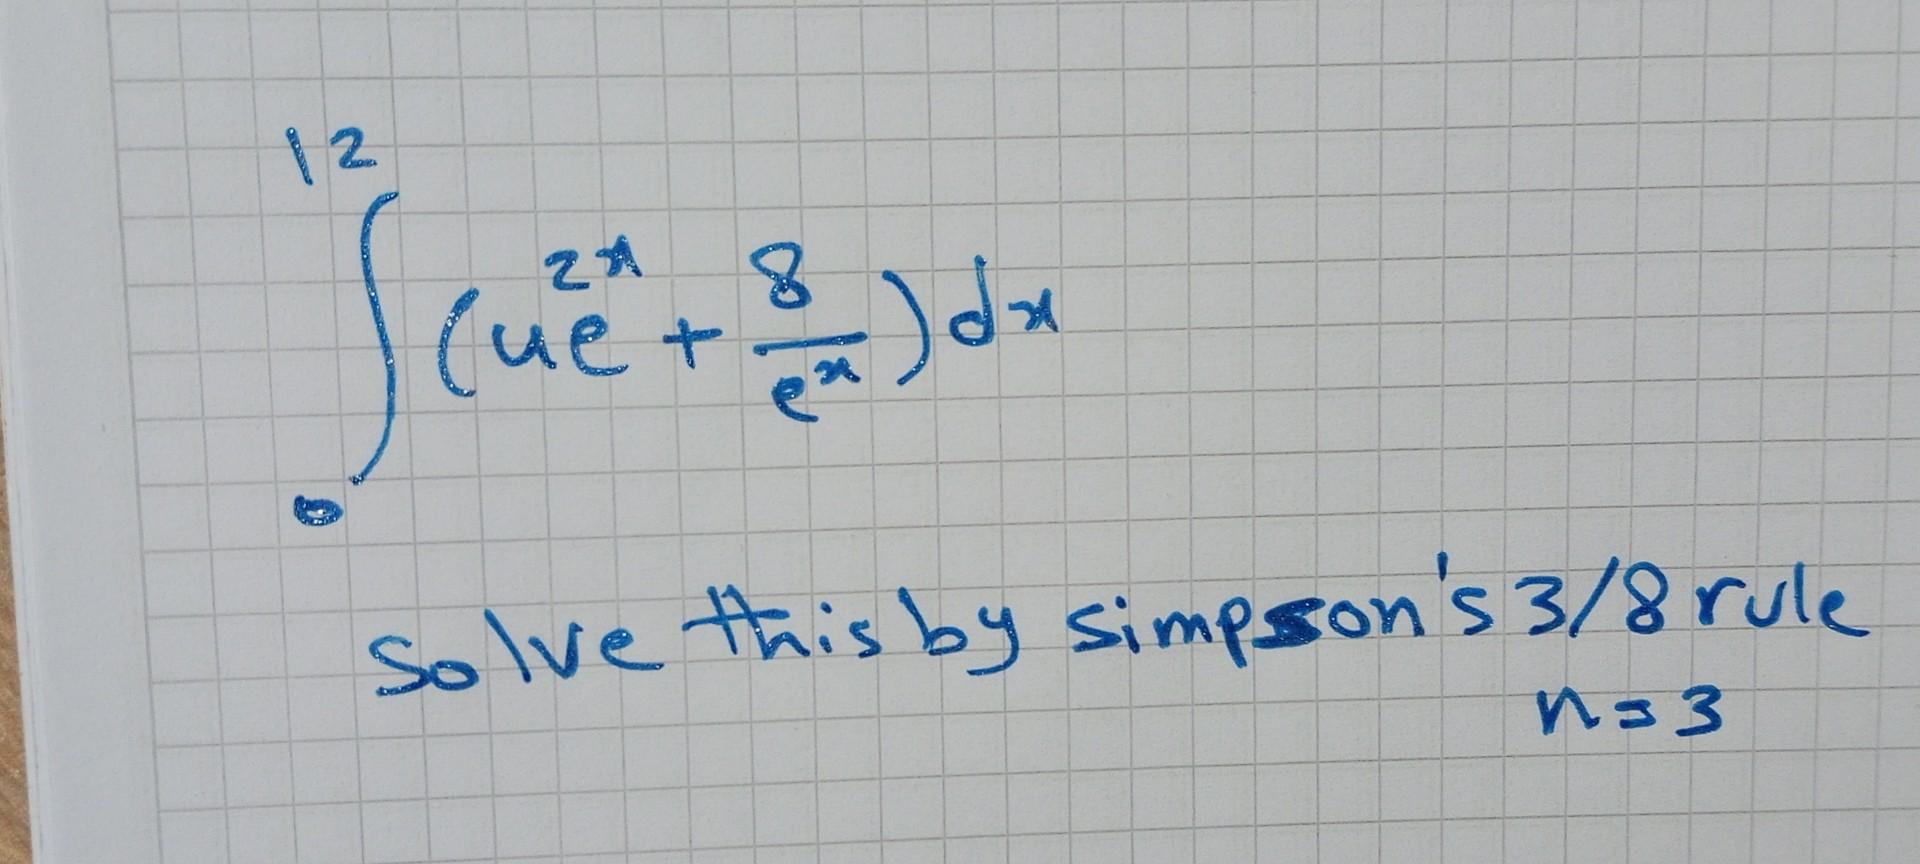 ∫₀¹² (4e²ˣ + 8/eˣ) dx
solve this by simpson's 3/8 rule
n=3